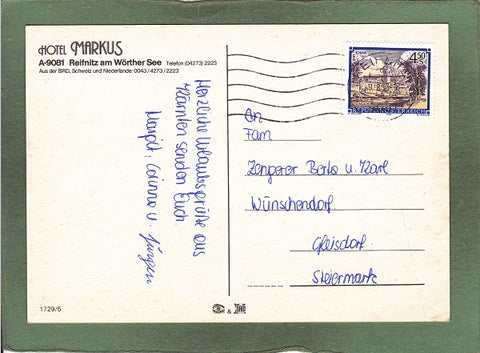 HOTEL MARKUS
A-9081 Reifnitz am Wörther See Telefon (04273) 2223
Aus der BRD, Schweiz und Niederlande: 0043/4273/2223
Herzliche Urlaubsgrüße aus
Kärnten senden Euch
Margit, Corinna u. Jürgen
4.50
REPUBLIK ÖSTERREICH
An
Fam
Zengerer Berta u. Karl
Wünschendorf
Gleisdorf
Steiermark
1729/5
&